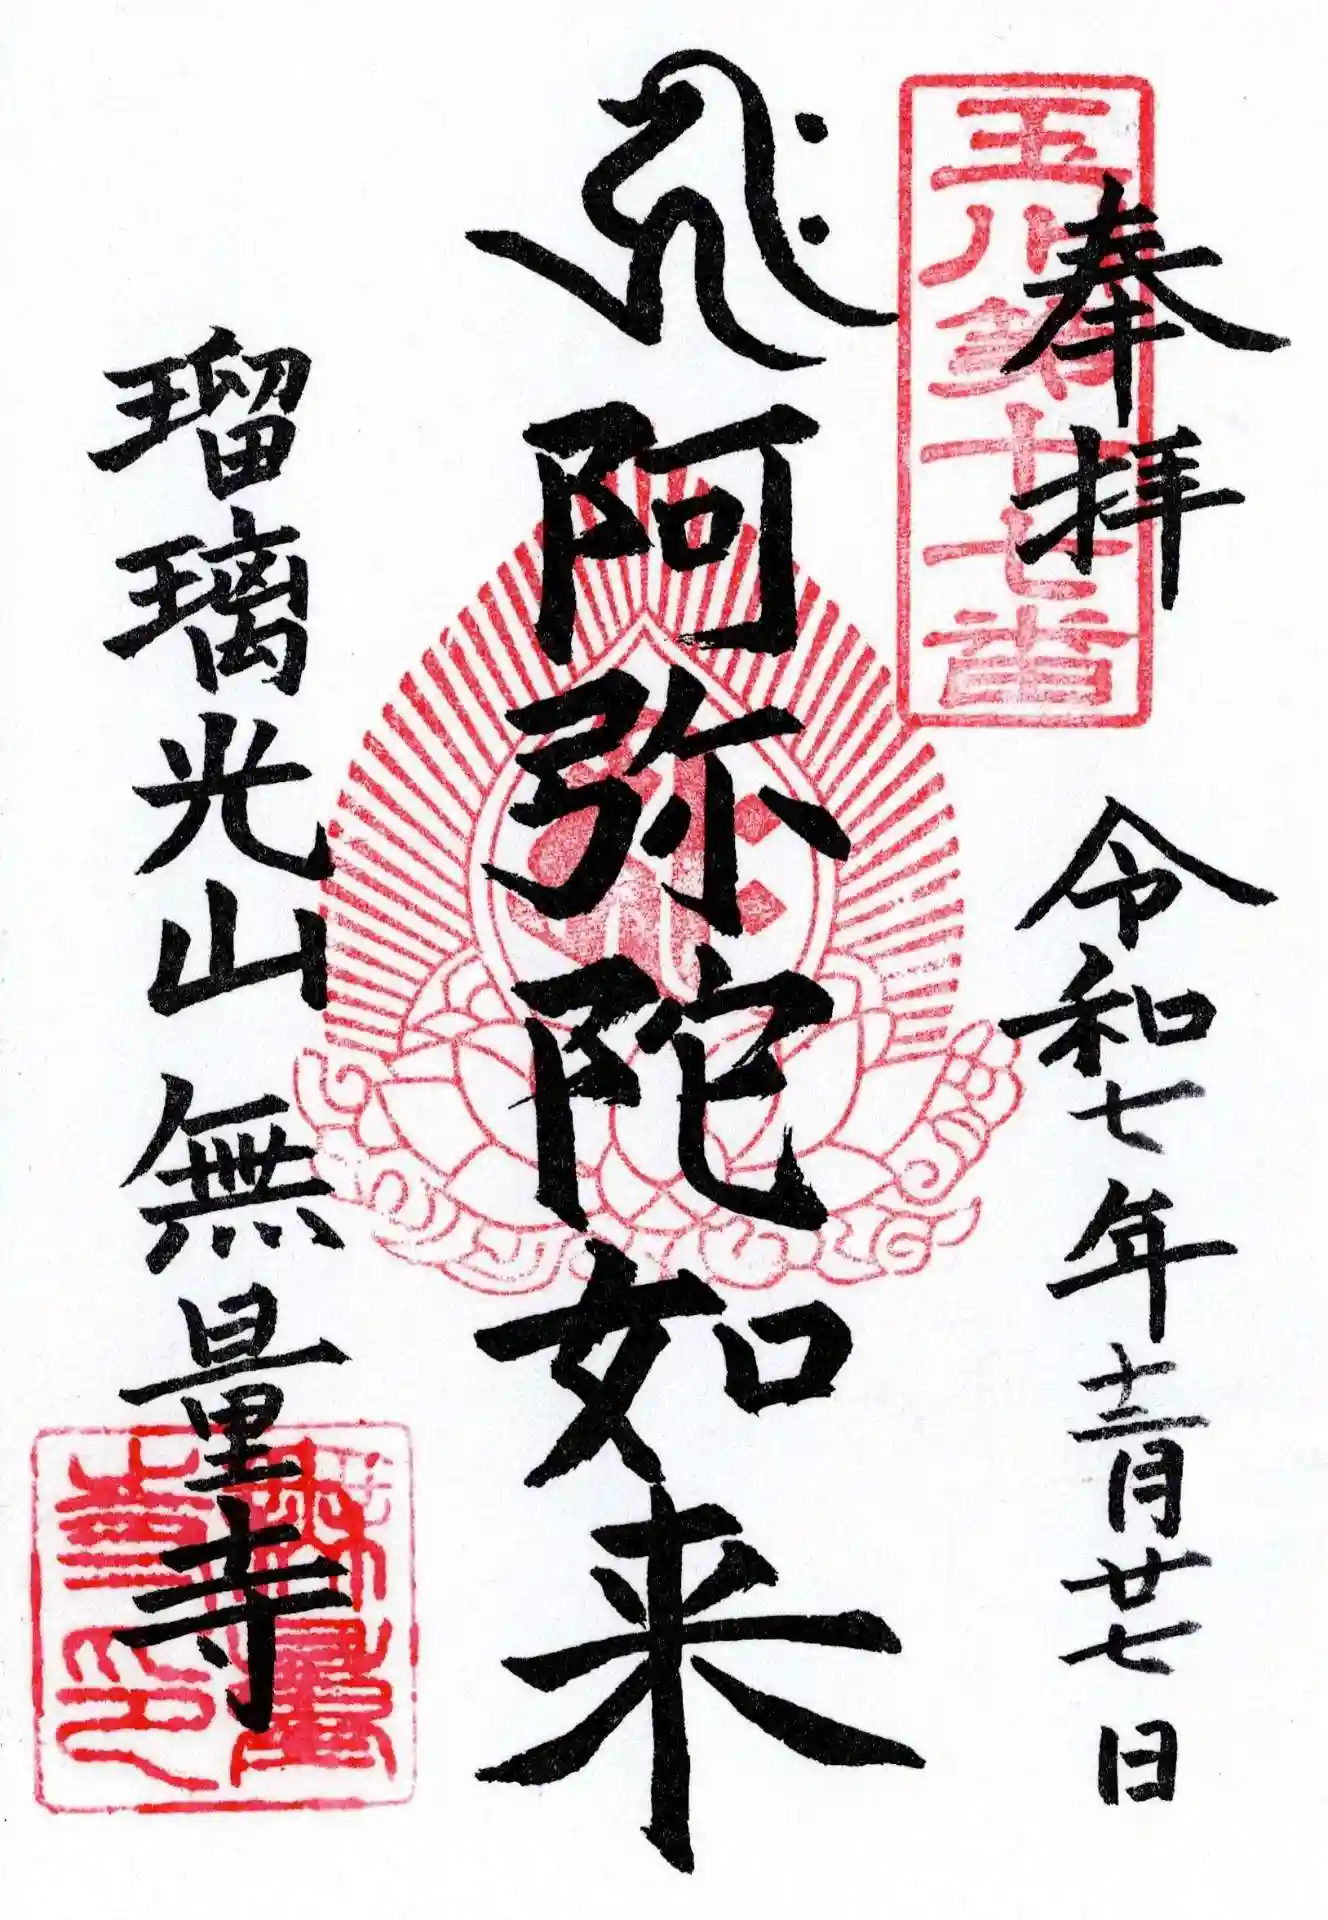 奉拝
令和七年十二月廿七日
玉川第十七番
𑖮𑖿𑖨𑖱𑖾
阿弥陀如来
瑠璃光山 無量寺
無量寺印